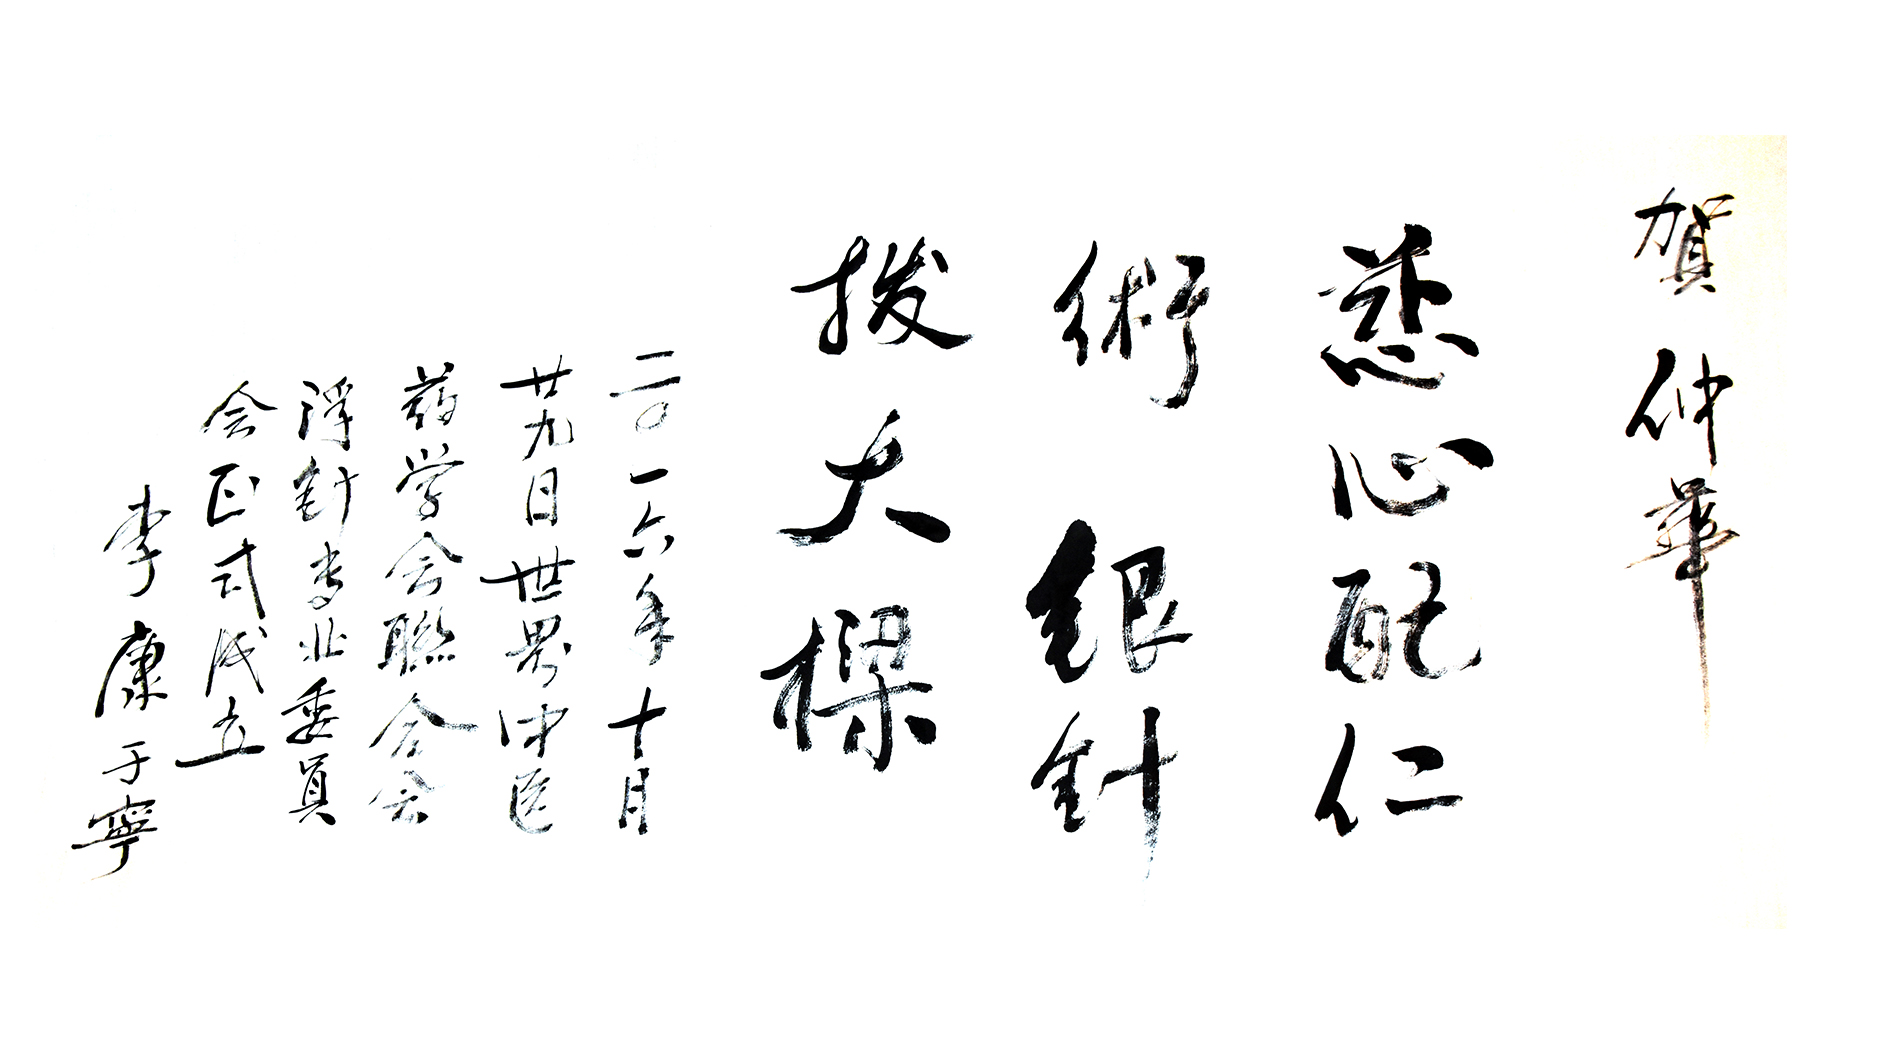 賀仲華
慈心配仁
術銀針
拨大樑
二〇一六年十月
廿九日世界中医
药学会聯合会
浮針专业委員
会正式成立
李康于寧